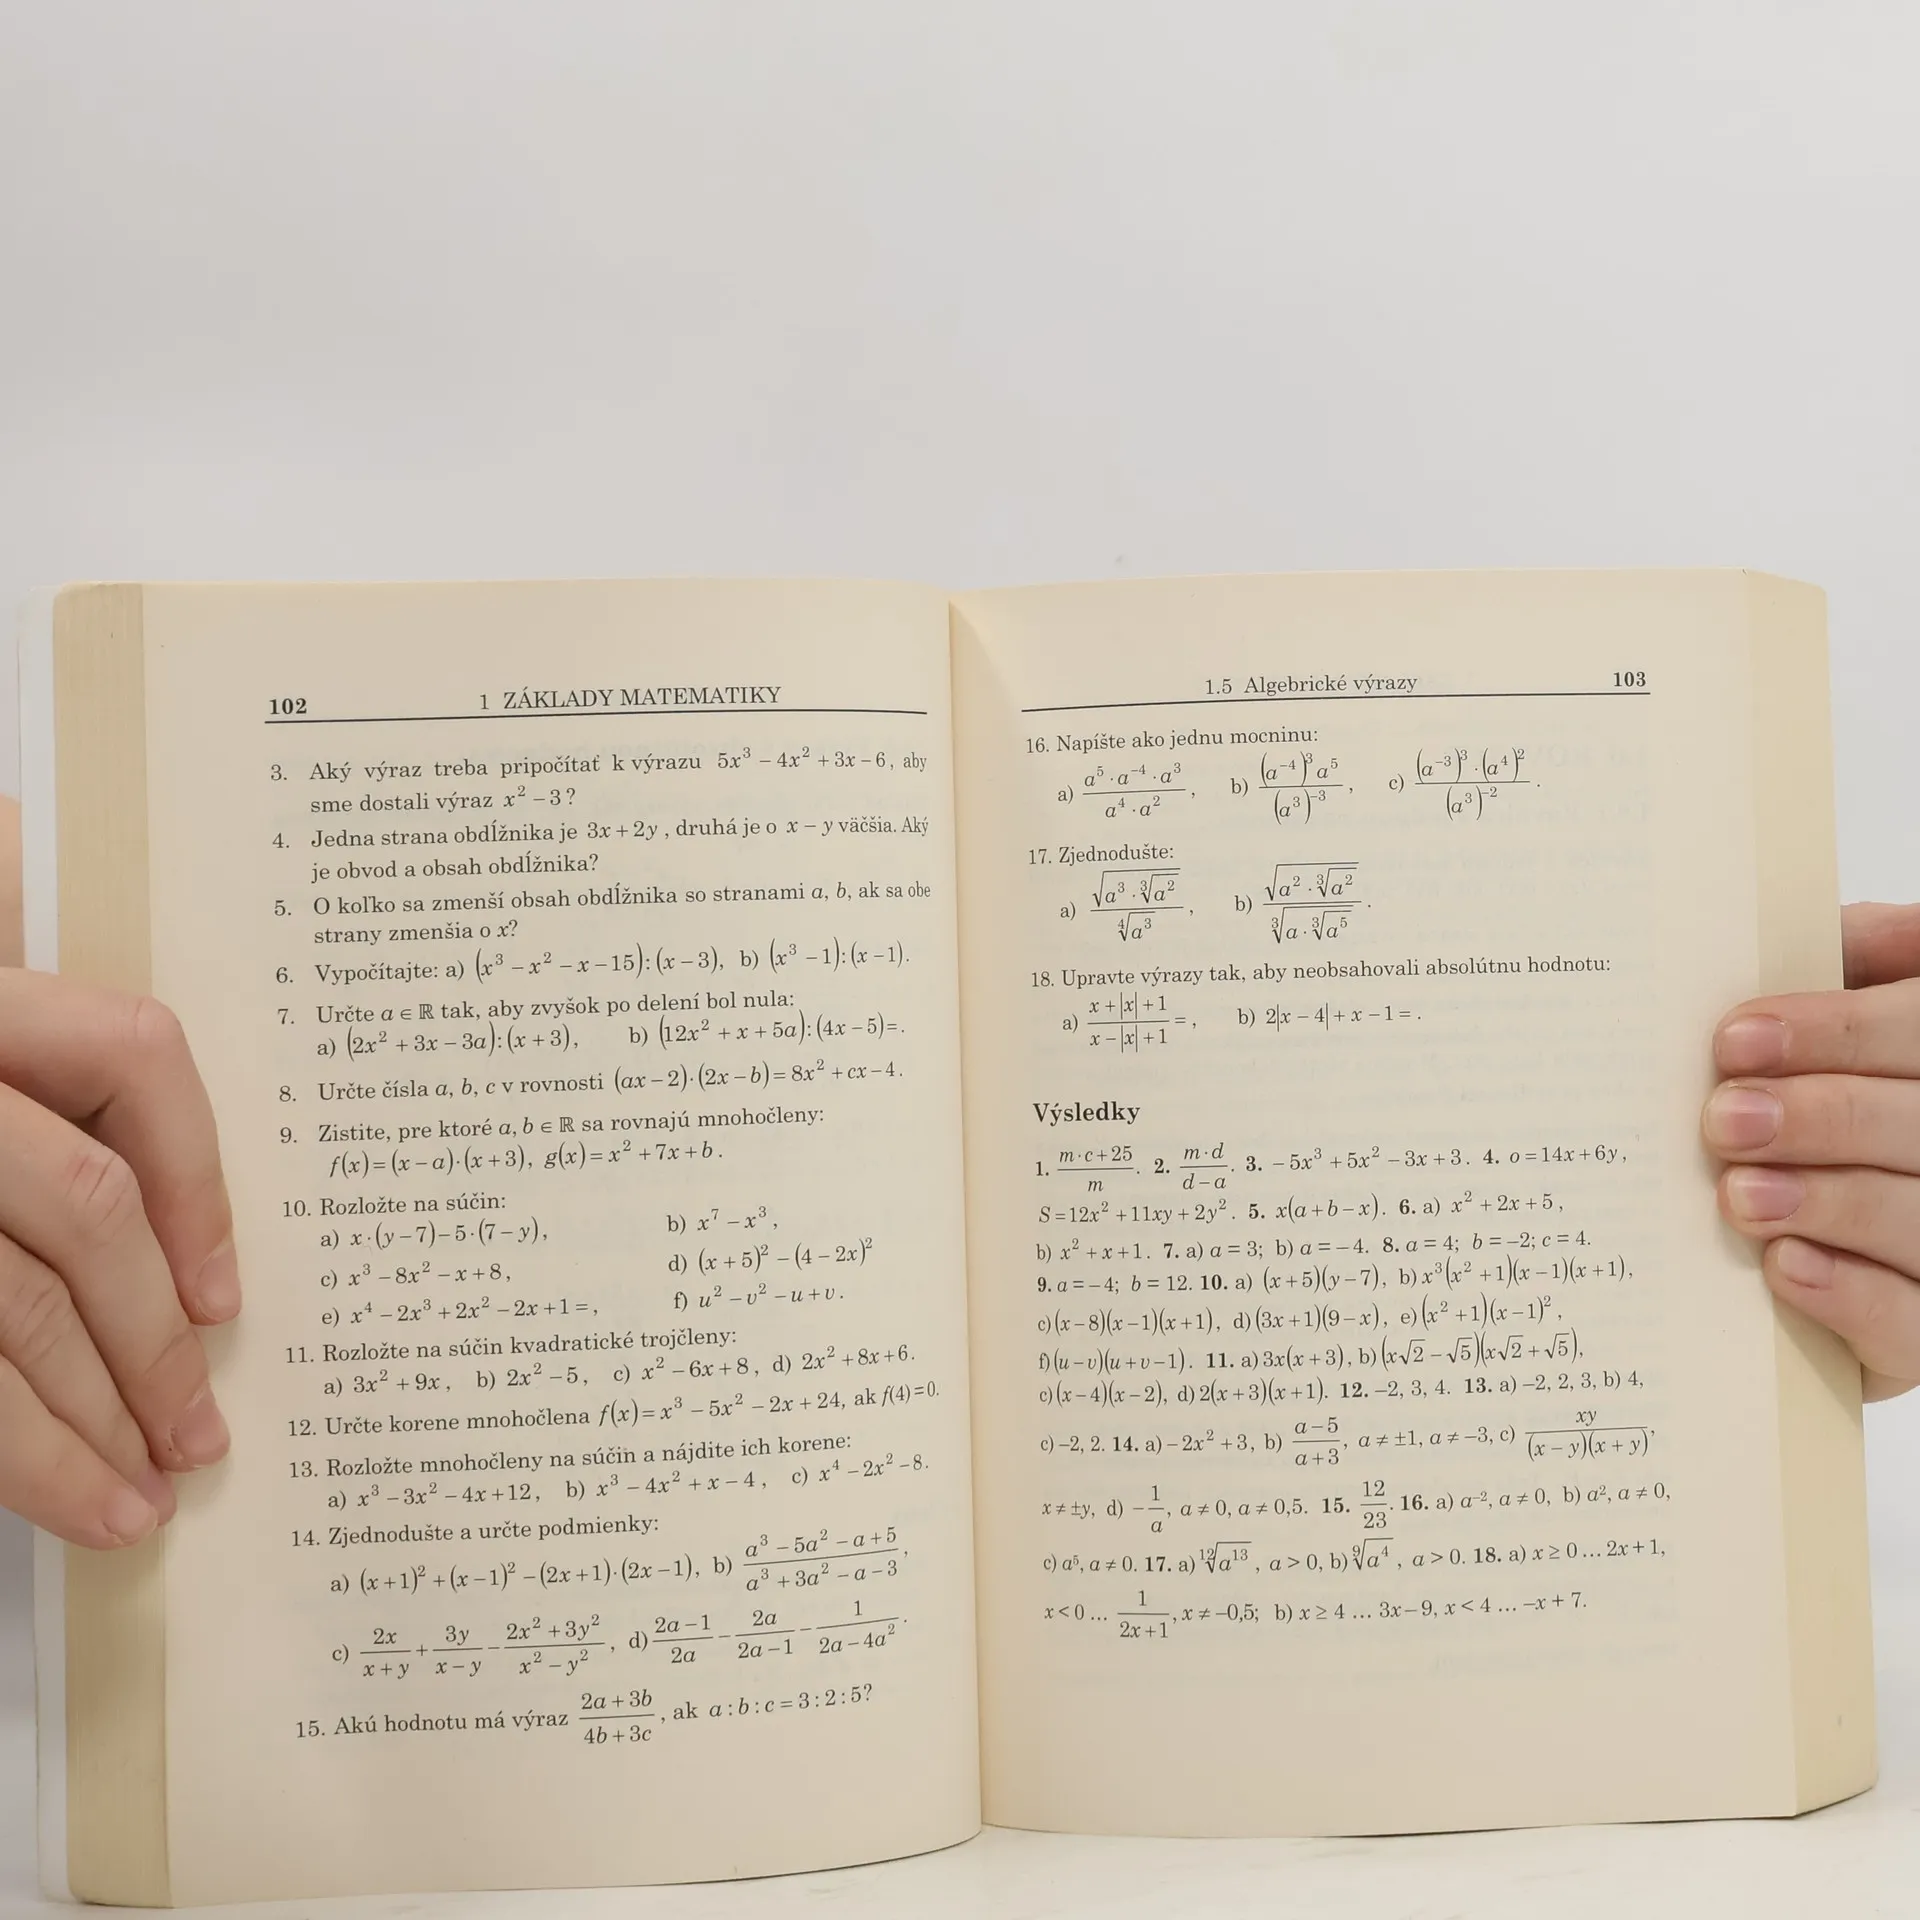 102 1 ZÁKLADY MATEMATIKY
3. Aký výraz treba pripočítať k výrazu 5x³ – 4x² + 3x – 6, aby
sme dostali výraz x² – 3?
4. Jedna strana obdĺžnika je 3x + 2y, druhá je o x – y väčšia. Aký
je obvod a obsah obdĺžnika?
5. O koľko sa zmenší obsah obdĺžnika so stranami a, b, ak sa obe
strany zmenšia o x?
6. Vypočítajte: a) (x³ – x² – x – 15):(x – 3), b) (x³ – 1):(x – 1).
7. Určte a ∈ ℝ tak, aby zvyšok po delení bol nula:
a) (2x² + 3x – 3a):(x + 3), b) (12x² + x + 5a):(4x – 5)=.
8. Určte čísla a, b, c v rovnosti (ax – 2)·(2x – b) = 8x² + cx – 4.
9. Zistite, pre ktoré a, b ∈ ℝ sa rovnajú mnohočleny:
f(x) = (x – a)·(x + 3), g(x) = x² + 7x + b.
10. Rozložte na súčin:
a) x·(y – 7) – 5·(7 – y), b) x⁷ – x³,
c) x³ – 8x² – x + 8, d) (x + 5)² – (4 – 2x)²
e) x⁴ – 2x³ + 2x² – 2x + 1 =, f) u² – v² – u + v.
11. Rozložte na súčin kvadratické trojčleny:
a) 3x² + 9x, b) 2x² – 5, c) x² – 6x + 8, d) 2x² + 8x + 6.
12. Určte korene mnohočlena f(x) = x³ – 5x² – 2x + 24, ak f(4) = 0.
13. Rozložte mnohočleny na súčin a nájdite ich korene:
a) x³ – 3x² – 4x + 12, b) x³ – 4x² + x – 4, c) x⁴ – 2x² – 8.
14. Zjednodušte a určte podmienky:
a) (x + 1)² + (x – 1)² – (2x + 1)·(2x – 1), b) (a³ – 5a² – a + 5)/(a³ + 3a² – a – 3),
c) 2x/(x + y) + 3y/(x – y) – (2x² + 3y²)/(x² – y²), d) (2a – 1)/2a – 2a/(2a – 1) – 1/(2a – 4a²).
15. Akú hodnotu má výraz (2a + 3b)/(4b + 3c), ak a : b : c = 3 : 2 : 5?
1.5 Algebrické výrazy 103
16. Napíšte ako jednu mocninu:
a) (a⁵ · a⁻⁴ · a³)/(a⁴ · a²), b) ((a⁻⁴)³ a⁵)/(a³)⁻³, c) ((a⁻³)³ · (a⁴)²)/(a³)⁻².
17. Zjednodušte:
a) √(a³ · ∛a²)/∜a³, b) √(a² · ∛a²)/∛(a · ∛a⁵).
18. Upravte výrazy tak, aby neobsahovali absolútnu hodnotu:
a) (x + |x| + 1)/(x – |x| + 1) =, b) 2|x – 4| + x – 1 = .
Výsledky
1. (m·c + 25)/m. 2. (m·d)/(d – a). 3. – 5x³ + 5x² – 3x + 3. 4. o = 14x + 6y,
S = 12x² + 11xy + 2y². 5. x(a + b – x). 6. a) x² + 2x + 5,
b) x² + x + 1. 7. a) a = 3; b) a = – 4. 8. a = 4; b = –2; c = 4.
9. a = – 4; b = 12. 10. a) (x + 5)(y – 7), b) x³(x² + 1)(x – 1)(x + 1),
c) (x – 8)(x – 1)(x + 1), d) (3x + 1)(9 – x), e) (x² + 1)(x – 1)²,
f) (u – v)(u + v – 1). 11. a) 3x(x + 3), b) (x√2 – √5)(x√2 + √5),
c) (x – 4)(x – 2), d) 2(x + 3)(x + 1). 12. –2, 3, 4. 13. a) –2, 2, 3, b) 4,
c) –2, 2. 14. a) – 2x² + 3, b) (a – 5)/(a + 3), a ≠ ±1, a ≠ –3, c) xy/((x – y)(x + y)),
x ≠ ±y, d) –1/a, a ≠ 0, a ≠ 0,5. 15. 12/23. 16. a) a⁻², a ≠ 0, b) a², a ≠ 0,
c) a⁵, a ≠ 0. 17. a) ¹²√a¹³, a > 0, b) ⁹√a⁴, a > 0. 18. a) x ≥ 0 ... 2x + 1,
x < 0 ... 1/(2x + 1), x ≠ –0,5; b) x ≥ 4 ... 3x – 9, x < 4 ... –x + 7.